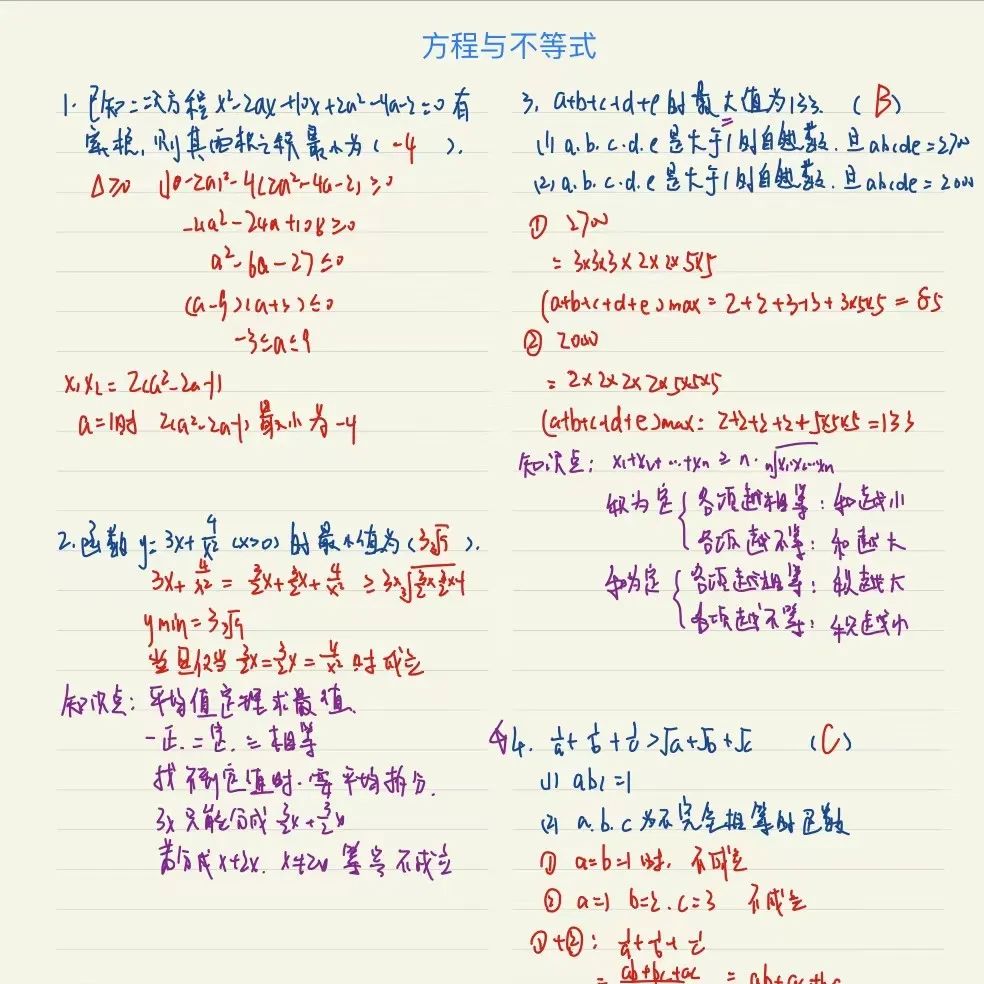 方程与不等式
1. 已知二次方程 x²-2ax+10x+2a²-4a-2=0 有
实根, 则其两根之积最小为 ( -4 ).
Δ≥0 (10-2a)²-4(2a²-4a-2)≥0
-4a²-24a+108≥0
a²-6a-27≤0
(a-9)(a+3)≤0
-3≤a≤9
x₁x₂=2(a²-2a-1)
a=1时 2(a²-2a-1)最小为-4
2. 函数 y=3x+4/x² (x>0) 的最小值为 (3∛9).
3x+4/x² = 3/2x+3/2x+4/x² ≥3×∛(3/2×3/2×4)
ymin=3∛9
当且仅当 3/2x=3/2x=4/x² 时成立
知识点: 平均值定理求最值.
一正. 二定. 三相等
找不到定值时. 要平均拆分.
3x 只能分成 3/2x+3/2x
若分成 x+2x. x≠2x 等号不成立
3. a+b+c+d+e 的最大值为133. (B)
(1) a.b.c.d.e 是大于1的自然数. 且 abcde=2700
(2) a.b.c.d.e 是大于1的自然数. 且 abcde=2000
① 2700
=3×3×3×2×2×5×5
(a+b+c+d+e)max=2+2+3+3+3×5×5=85
② 2000
=2×2×2×2×5×5×5
(a+b+c+d+e)max: 2+2+2+2+5×5×5=133
知识点: x₁+x₂+…+xₙ≥n·ⁿ√x₁x₂…xₙ
积为定 { 各项越相等: 和越小
各项越不等: 和越大
和为定 { 各项越相等: 积越大
各项越不等: 积越小
4. 1/a+1/b+1/c>√a+√b+√c (C)
(1) abc=1
(2) a.b.c 为不完全相等的正数
① a=b=1时. 不成立
② a=1 b=2. c=3 不成立
①+②: 1/a+1/b+1/c
=ab+bc+ac = ab+ac+bc